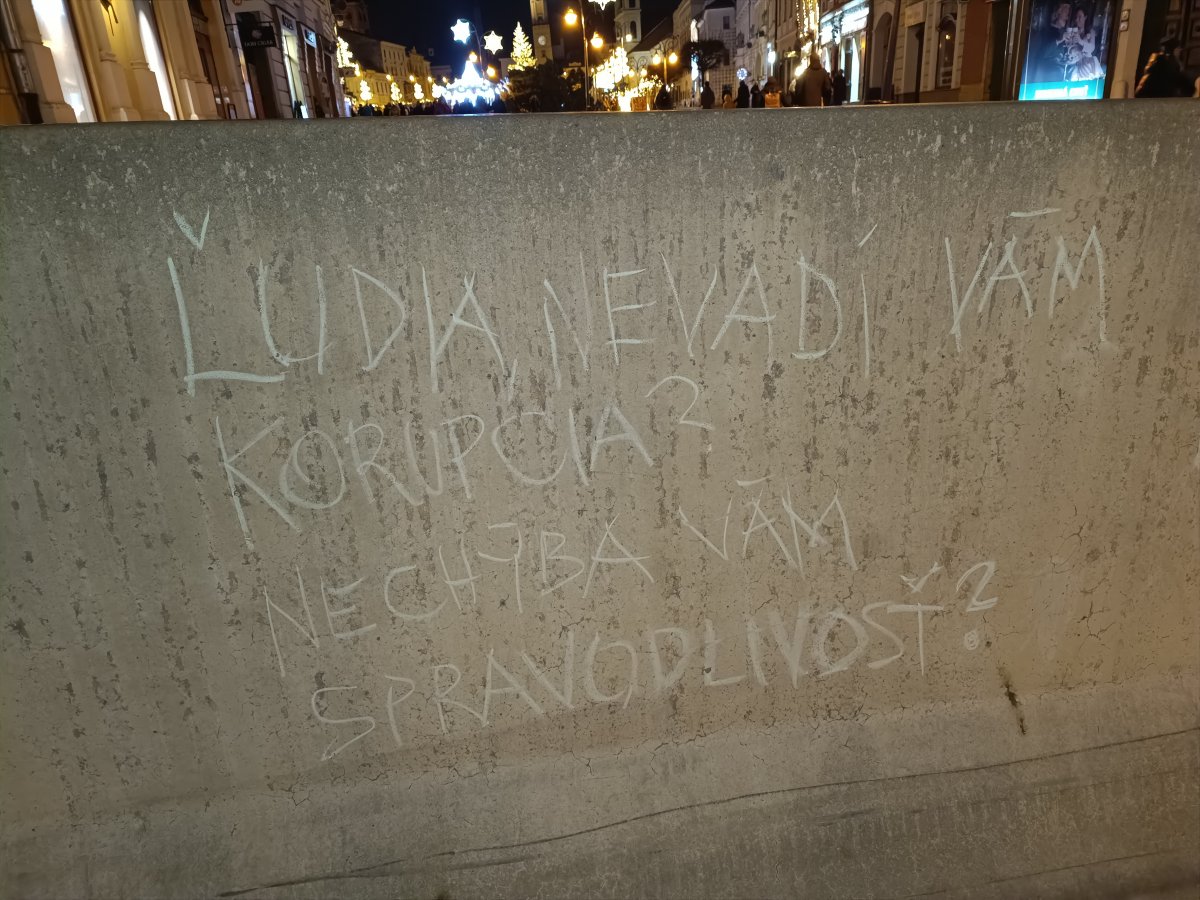 ĽUDIA, NEVADÍ VÁM
KORUPCIA?
NECHÝBA VÁM
SPRAVODLIVOSŤ?